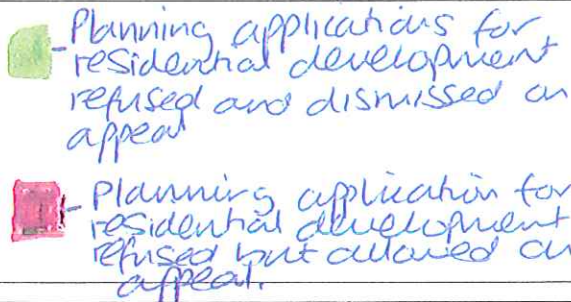 - Planning applications for
residential development
refused and dismissed on
appeal
- Planning application for
residential development
refused but allowed on
appeal.